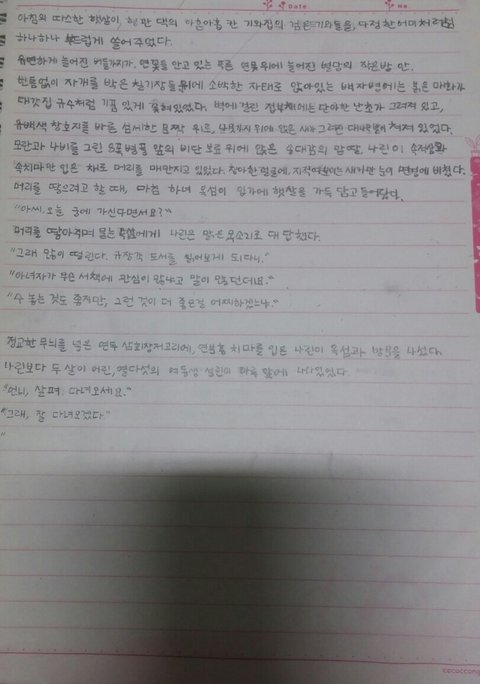 Date. No.
아침의 따스한 햇살이, 대감 댁의 아흔아홉 칸 기와집의 검은기와들을, 다정한 어미처럼
하나하나 부드럽게 쓸어 주었다.
유연하게 늘어진 버들가지가, 연꽃을 안고 있는 푸른 연못위에 늘어진 별당의 작은방 안.
빈틈없이 자개를 박은 칠기장들 위에 소박한 자태로 앉아있는 백자병에는 붉은 매화가
대갓집 규수처럼 기품 있게 꽂혀있었다. 벽에 걸린 족자에는 단아한 난초가 그려져 있고,
유백색 창호지를 바른 섬세한 문짝 위로, 나뭇가지 위에 앉은 새를 그려낸 대나무발이 쳐져 있었다.
모란과 나비를 그린 8폭병풍 앞의 비단 보료 위에 앉은 송대감의 맏딸, 나린이 속저고리와
속치마만 입은 채로 머리를 매만지고 있었다. 청아한 얼굴에, 지적여보이는 새까만 눈이 면경에 비쳤다.
머리를 땋으려고 할 때, 마침 하녀 옥섬이 입가에 햇살을 가득 담고 들어왔다.
"아씨, 오늘 궁에 가신다면서요?"
머리를 땋아주며 묻는 옥섬에게 나린은 맑은 목소리로 대답했다.
"그래 맘이 떨린다. 규장각 도서를 읽어보게 되다니."
"아녀자가 무슨 서책에 관심이 많냐고 말이 많던데요."
"수 놓는 것도 좋지만, 그런 것이 더 좋은걸 어찌하겠느냐."
정교한 무늬를 넣은 연두 삼회장저고리에, 연분홍 치마를 입은 나린이 옥섬과 방문을 나섰다.
나린보다 두 살이 어린, 열다섯의 여동생 설린이 하옥 앞에 나와있었다.
"언니, 살펴 다녀오세요."
"그래, 잘 다녀오겠다."
"
cococcong